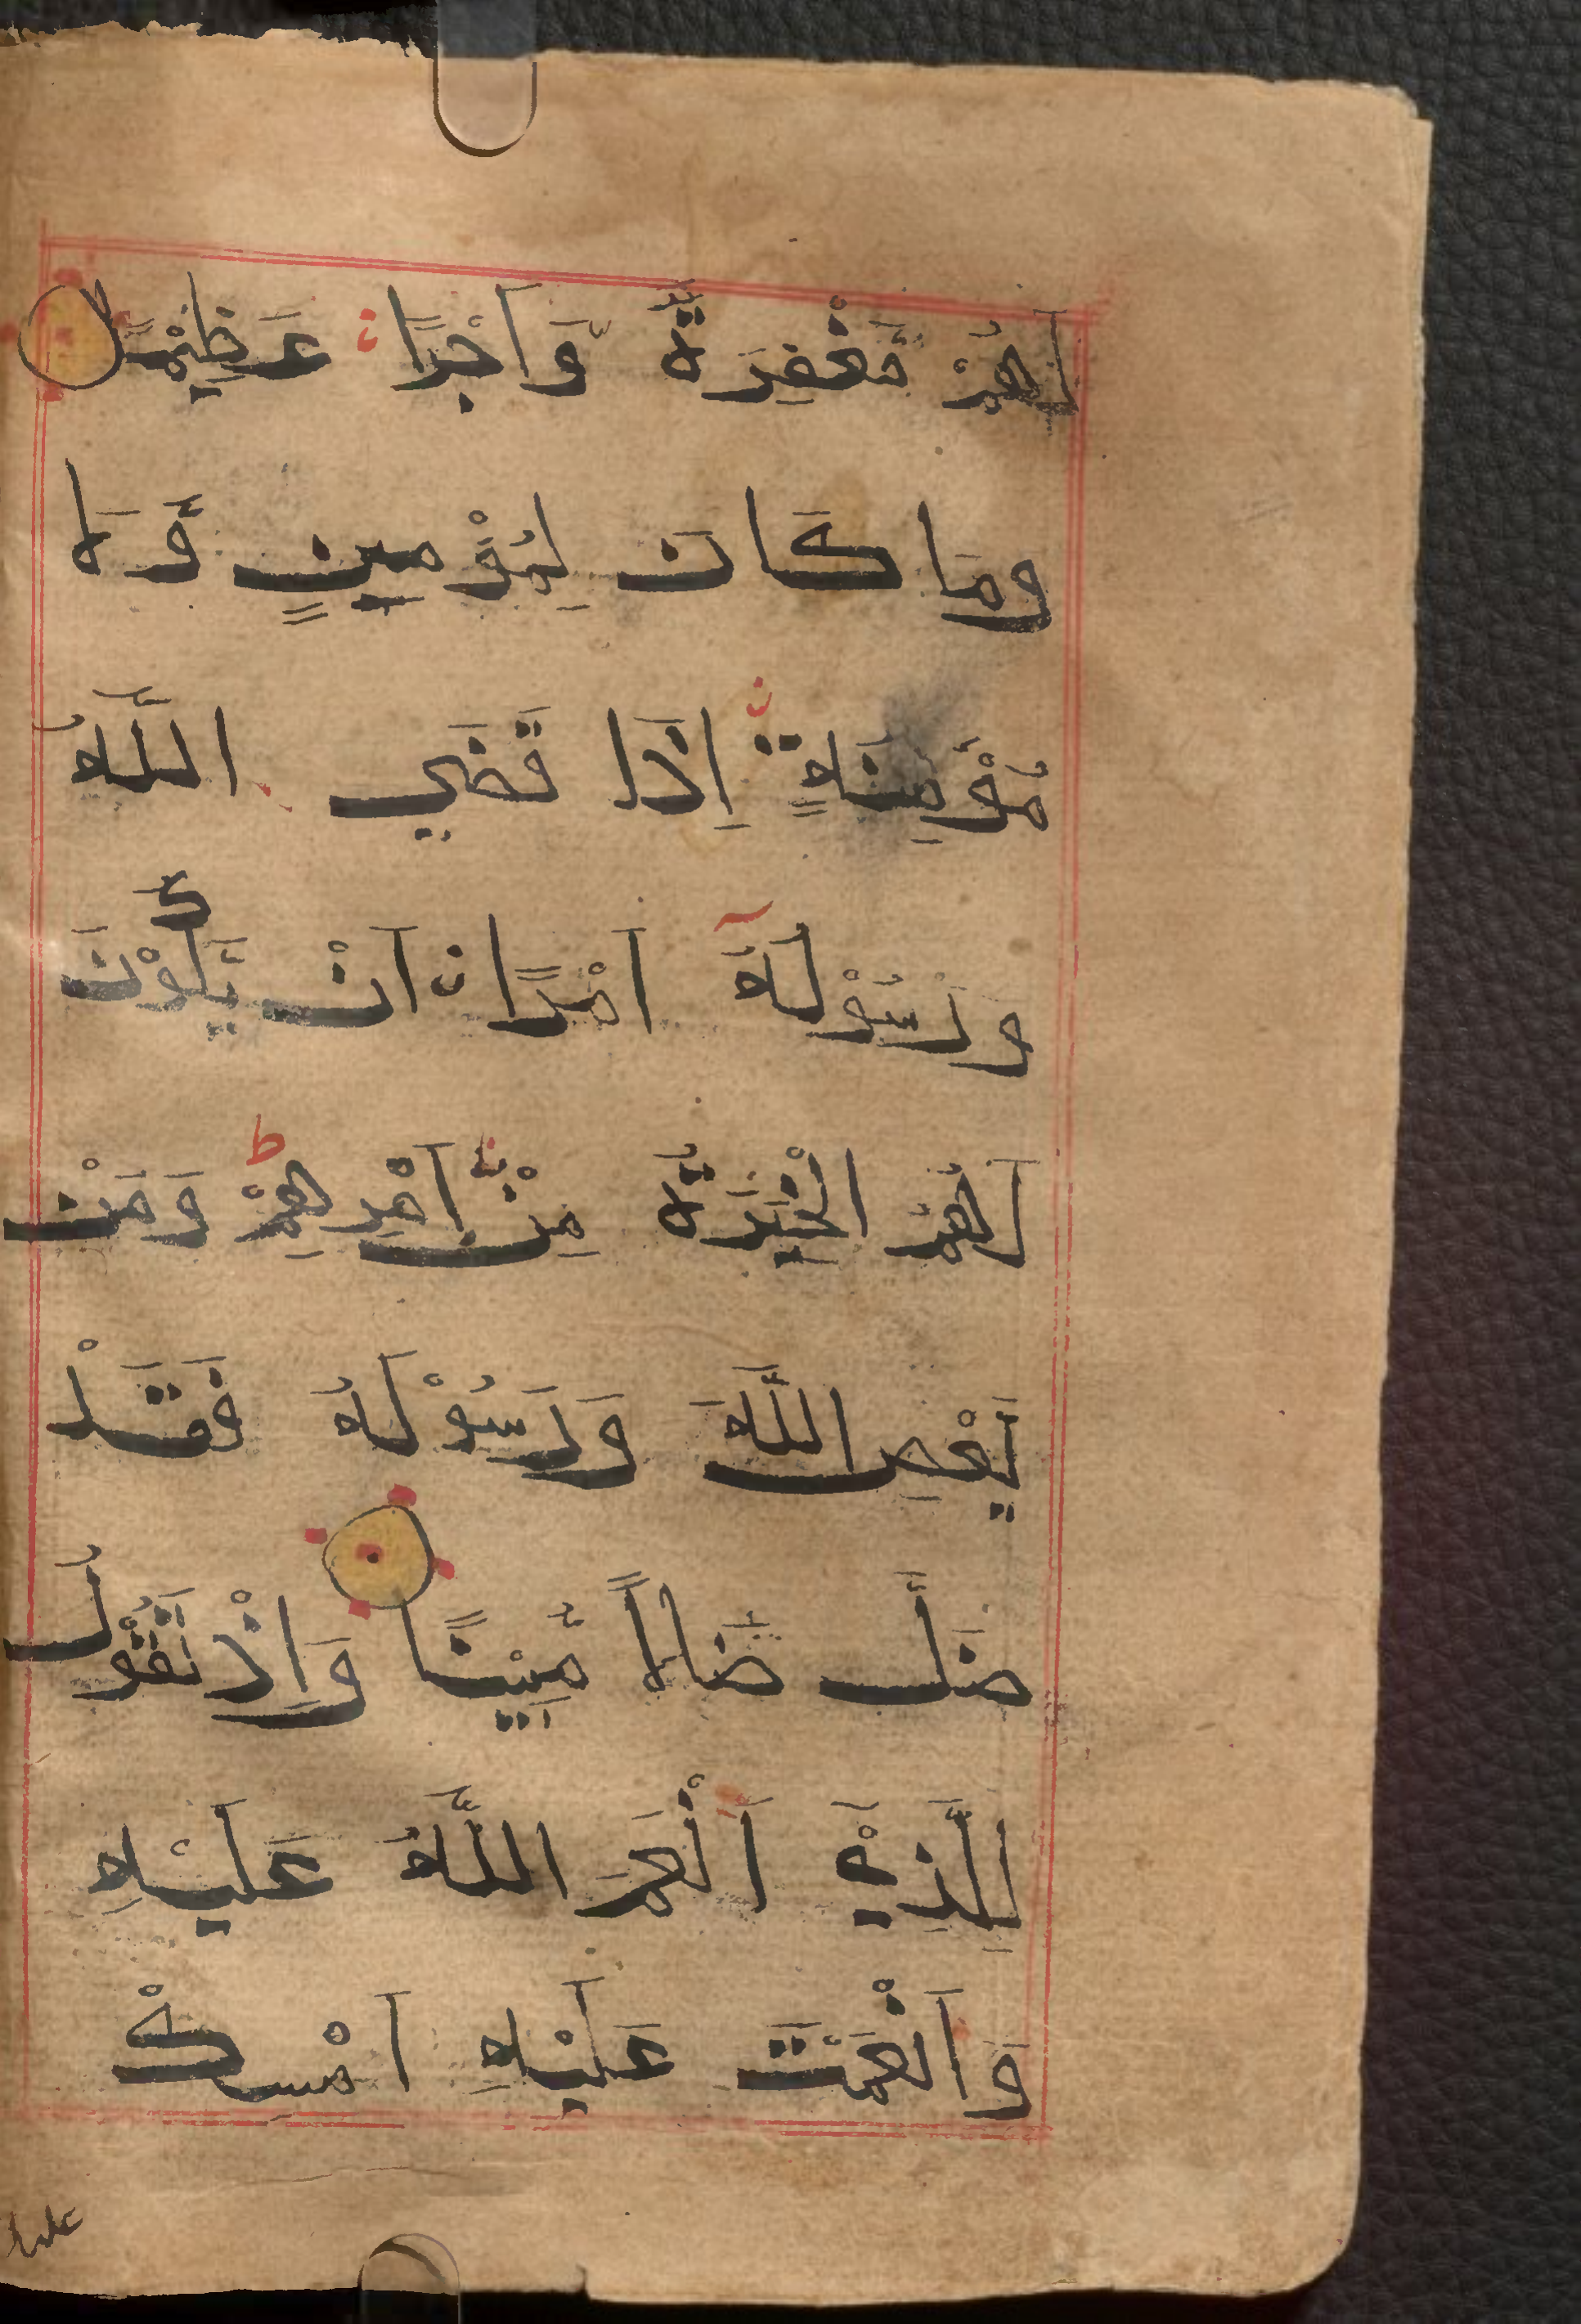 لَهُمْ مَّغْفِرَةً وَّاَجْرًا عَظِيْمًا
وَمَا كَانَ لِمُؤْمِنٍ وَّلَا
مُؤْمِنَةٍ اِذَا قَضَي اللّٰهُ
وَرَسُوْلُهٗٓ اَمْرًا اَنْ يَّكُوْنَ
لَهُمُ الْخِيَرَةُ مِنْ اَمْرِهِمْ ط وَمَنْ
يَعْصِ اللّٰهَ وَرَسُوْلَهُ فَقَدْ
ضَلَّ ضَلٰلاً مُّبِيْنًا وَاِذْ تَقُوْلُ
لِلَّذِيْٓ اَنْعَمَ اللّٰهُ عَلَيْهِ
وَاَنْعَمْتَ عَلَيْهِ اَمْسِكْ
عليك